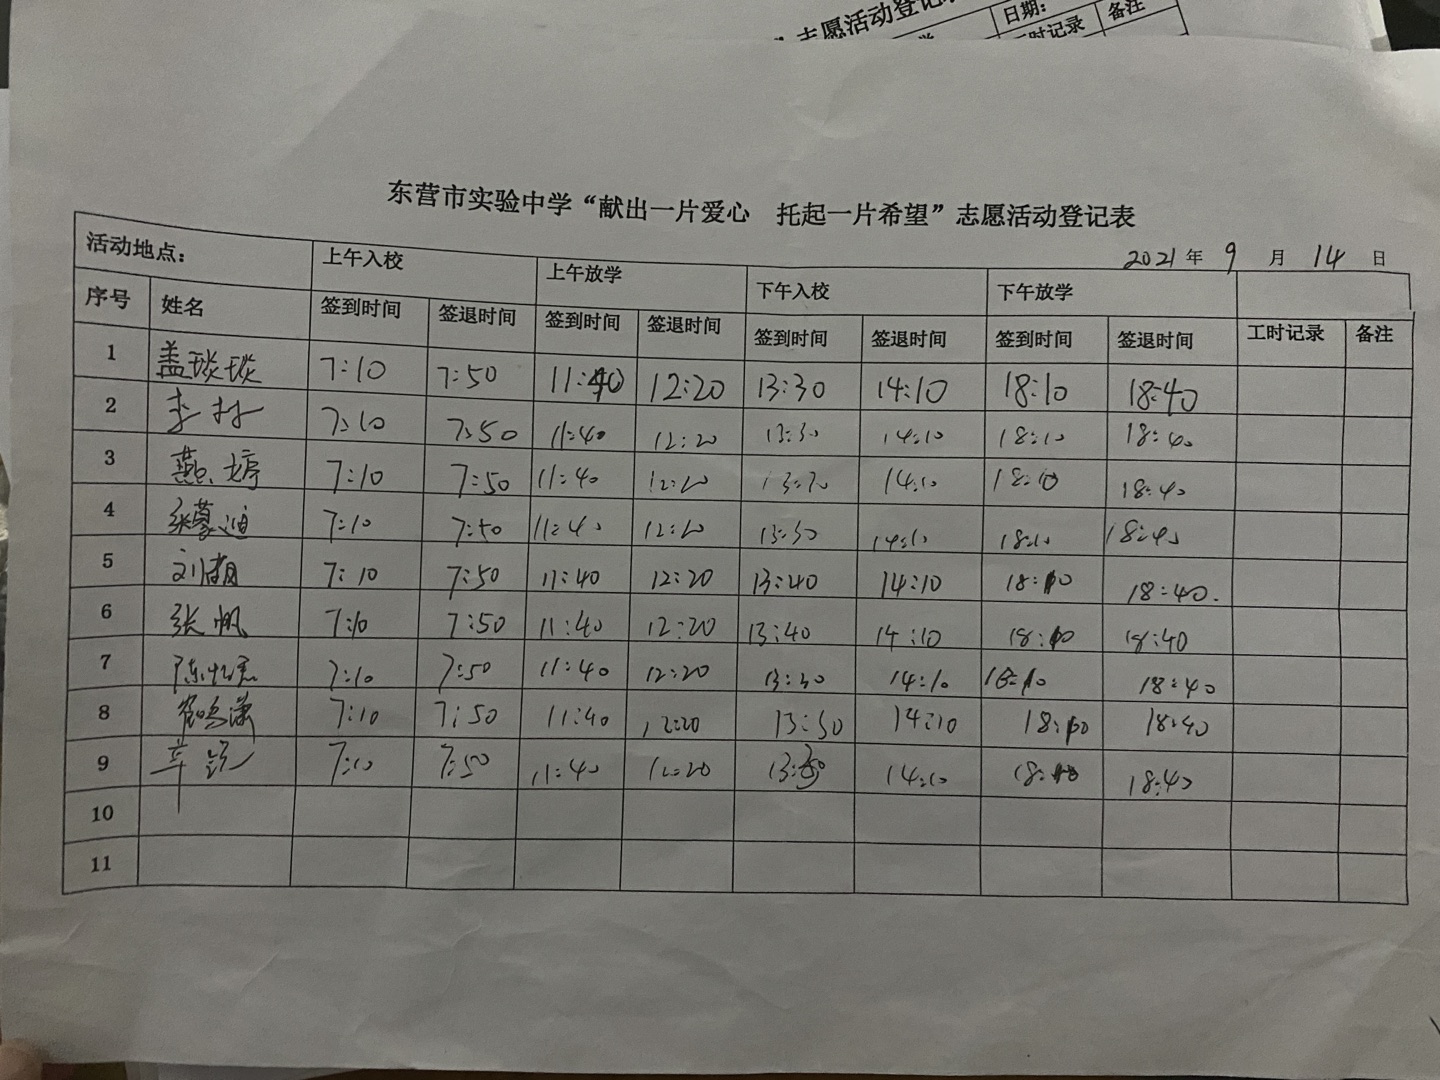 志愿活动登记
日期:
工时记录 备注
东营市实验中学“献出一片爱心 托起一片希望”志愿活动登记表
2021年 9 月 14 日
活动地点: 上午入校 上午放学 下午入校 下午放学
序号 姓名 签到时间 签退时间 签到时间 签退时间 签到时间 签退时间 签到时间 签退时间 工时记录 备注
1 盖琰琰 7:10 7:50 11:40 12:20 13:30 14:10 18:10 18:40
2 李 7:10 7:50 11:40 12:20 13:30 14:10 18:10 18:40
3 燕婷 7:10 7:50 11:40 12:20 13:30 14:10 18:10 18:40
4 张蒙迪 7:10 7:50 11:40 12:20 13:30 14:10 18:10 18:40
5 刘 7:10 7:50 11:40 12:20 13:40 14:10 18:10 18:40.
6 张帆 7:10 7:50 11:40 12:20 13:40 14:10 18:10 18:40
7 7:10 7:50 11:40 12:20 13:30 14:10 18:10 18:40
8 7:10 7:50 11:40 12:20 13:30 14:10 18:10 18:40
9 7:10 7:50 11:40 12:20 13:30 14:10 18:10 18:40
10
11